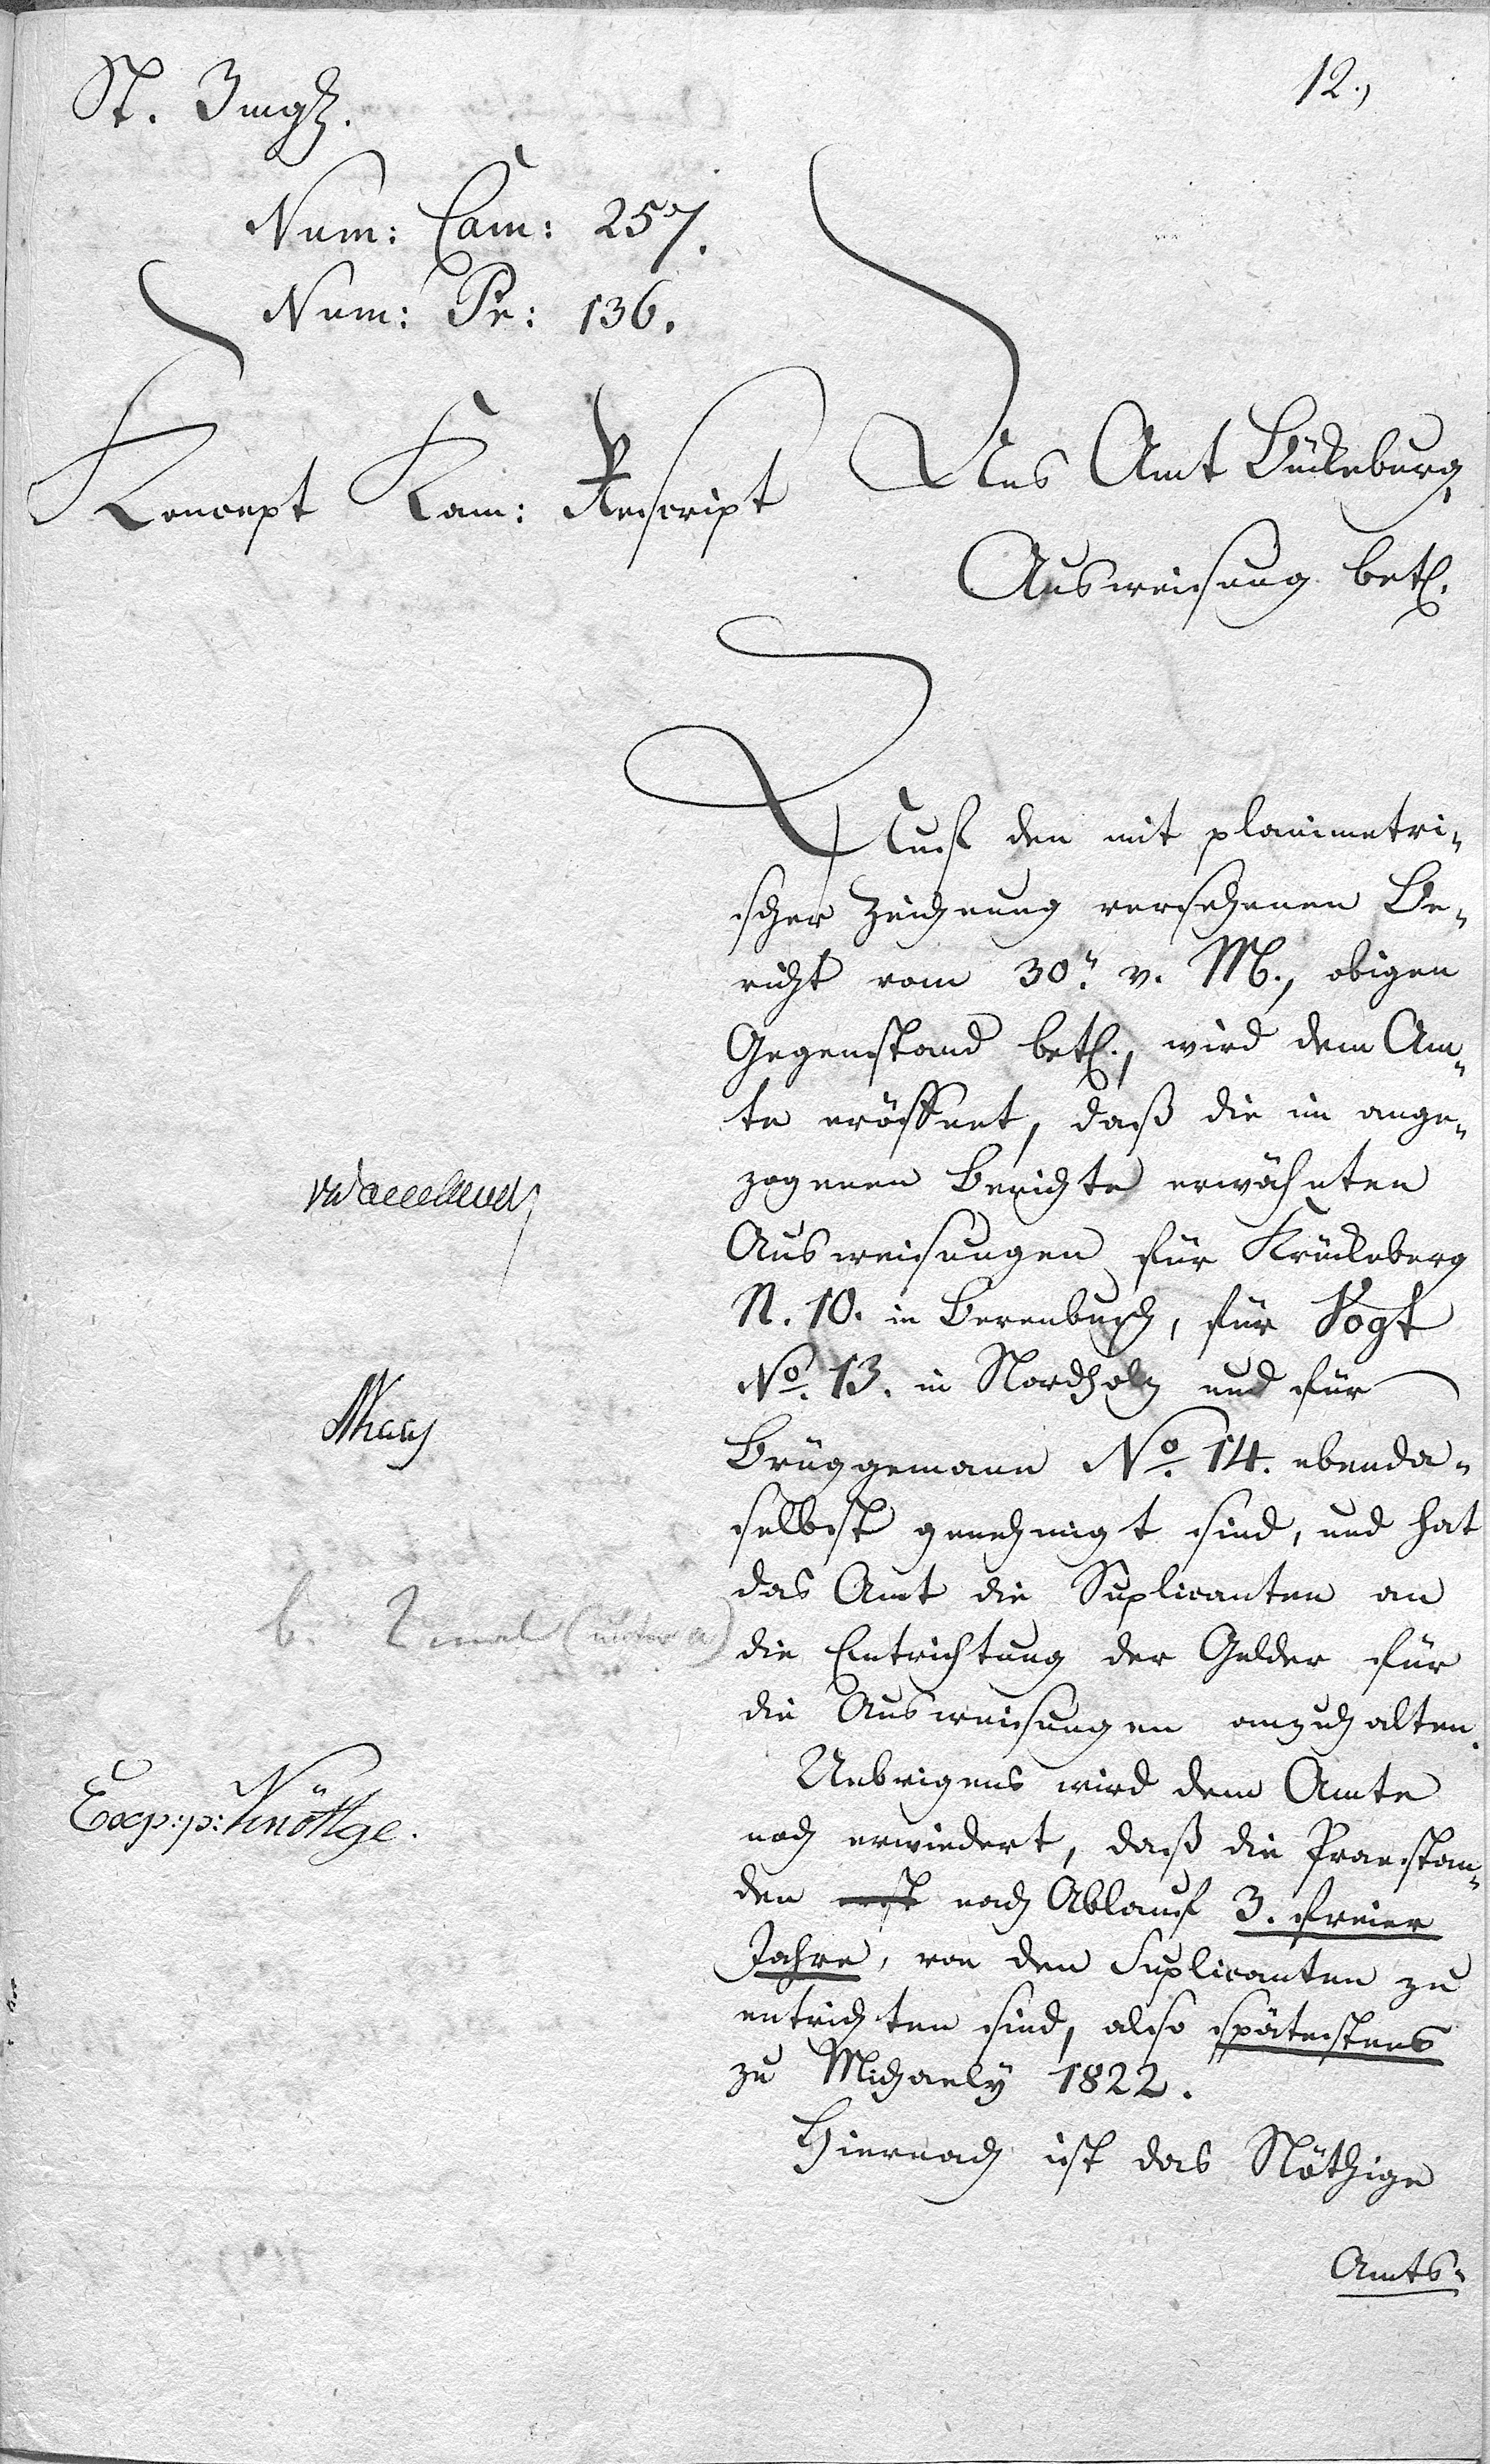 12.,
Num: Cam: 257.
Num: Pr: 136.
Koncept Kam: Rescript
Ans Amt Bückeburg,
Ausweisung betr.
Auf den mit planimetri-
scher Zeichnung versehenen Be-
richt vom 30n. v. M., obigen
Gegenstand betr., wird dem Am-
te eröffnet, daß die im ange-
zogenen Berichte erwähnten
Ausweisungen für Krückeberg
N. 10. in Berenbusch, für Vogt
No. 13. in Nordholz und für
Brüggemann No. 14. ebenda-
selbst genehmigt sind, und hat
das Amt die Suplicanten an
die Entrichtung der Gelder für
die Ausweisungen anzuhalten.
Uebrigens wird dem Amte
noch erwiedert, daß die Praestan-
den erst nach Ablauf 3. freier
Jahre, von den Suplicanten zu
entrichten sind, also spätestens
zu Michaely 1822.
Hiernach ist das Nöthige
Amts-
b. 2 mal (unter a)
Exp: p: Knöttge.